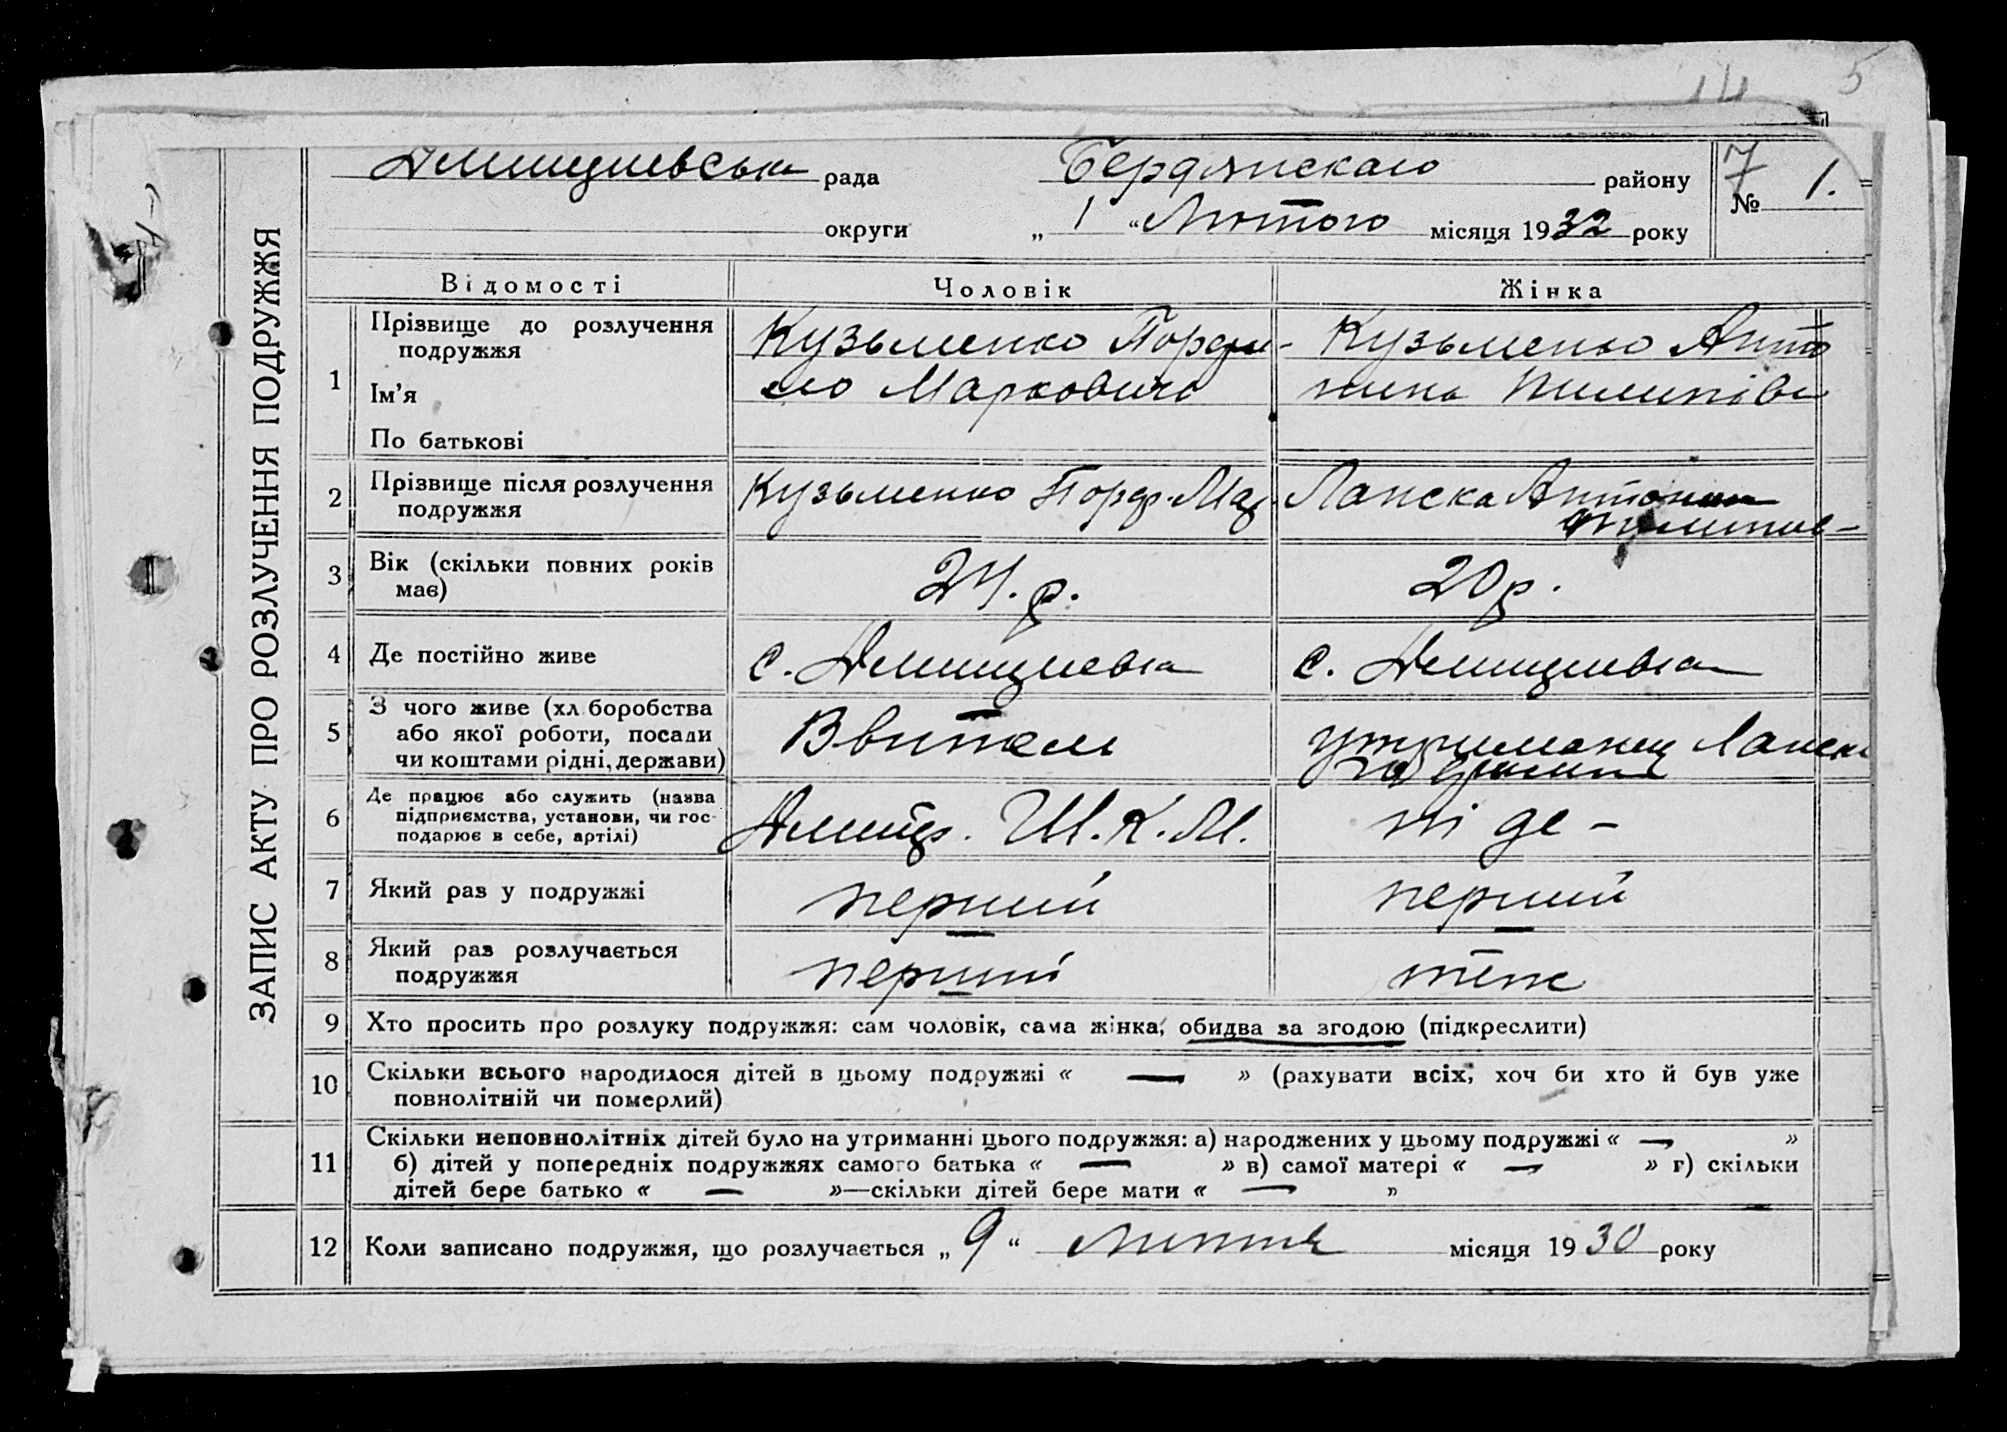 14 5
рада Бердянскаго району 7
округи „ 1 “ Лютого місяця 1932 року № 1.
ЗАПИС АКТУ ПРО РОЗЛУЧЕННЯ ПОДРУЖЖЯ
Відомості Чоловік Жінка
1 Прізвище до розлучення
подружжя
Ім'я
По батькові
Кузьменко Порфи-
Маркович
Кузьменко Анто
нина Пилипівн
2 Прізвище після розлучення
подружжя
Кузьменко Порф. Мар.
Ланска Антонина
3 Вік (скільки повних років
має)
24. р.
20 р.
4 Де постійно живе
с.
с.
5 З чого живе (хл боробства
або якої роботи, посади
чи коштами рідні, держави)
6 Де працює або служить (назва
підприємства, установи, чи гос-
подарює в себе, артілі)
Ш. К. М.
ні де –
7 Який раз у подружжі
перший
перший
8 Який раз розлучається
подружжя
перший
теж
9 Хто просить про розлуку подружжя: сам чоловік, сама жінка, обидва за згодою (підкреслити)
10 Скільки всього народилося дітей в цьому подружжі « — » (рахувати всіх, хоч би хто й був уже
повнолітній чи померлий)
11 Скільки неповнолітніх дітей було на утриманні цього подружжя: а) народжених у цьому подружжі « — »
б) дітей у попередніх подружжях самого батька « — » в) самої матері « — » г) скільки
дітей бере батько « — »—скільки дітей бере мати « — »
12 Коли записано подружжя, що розлучається „ 9 “ Липня місяця 1930 року